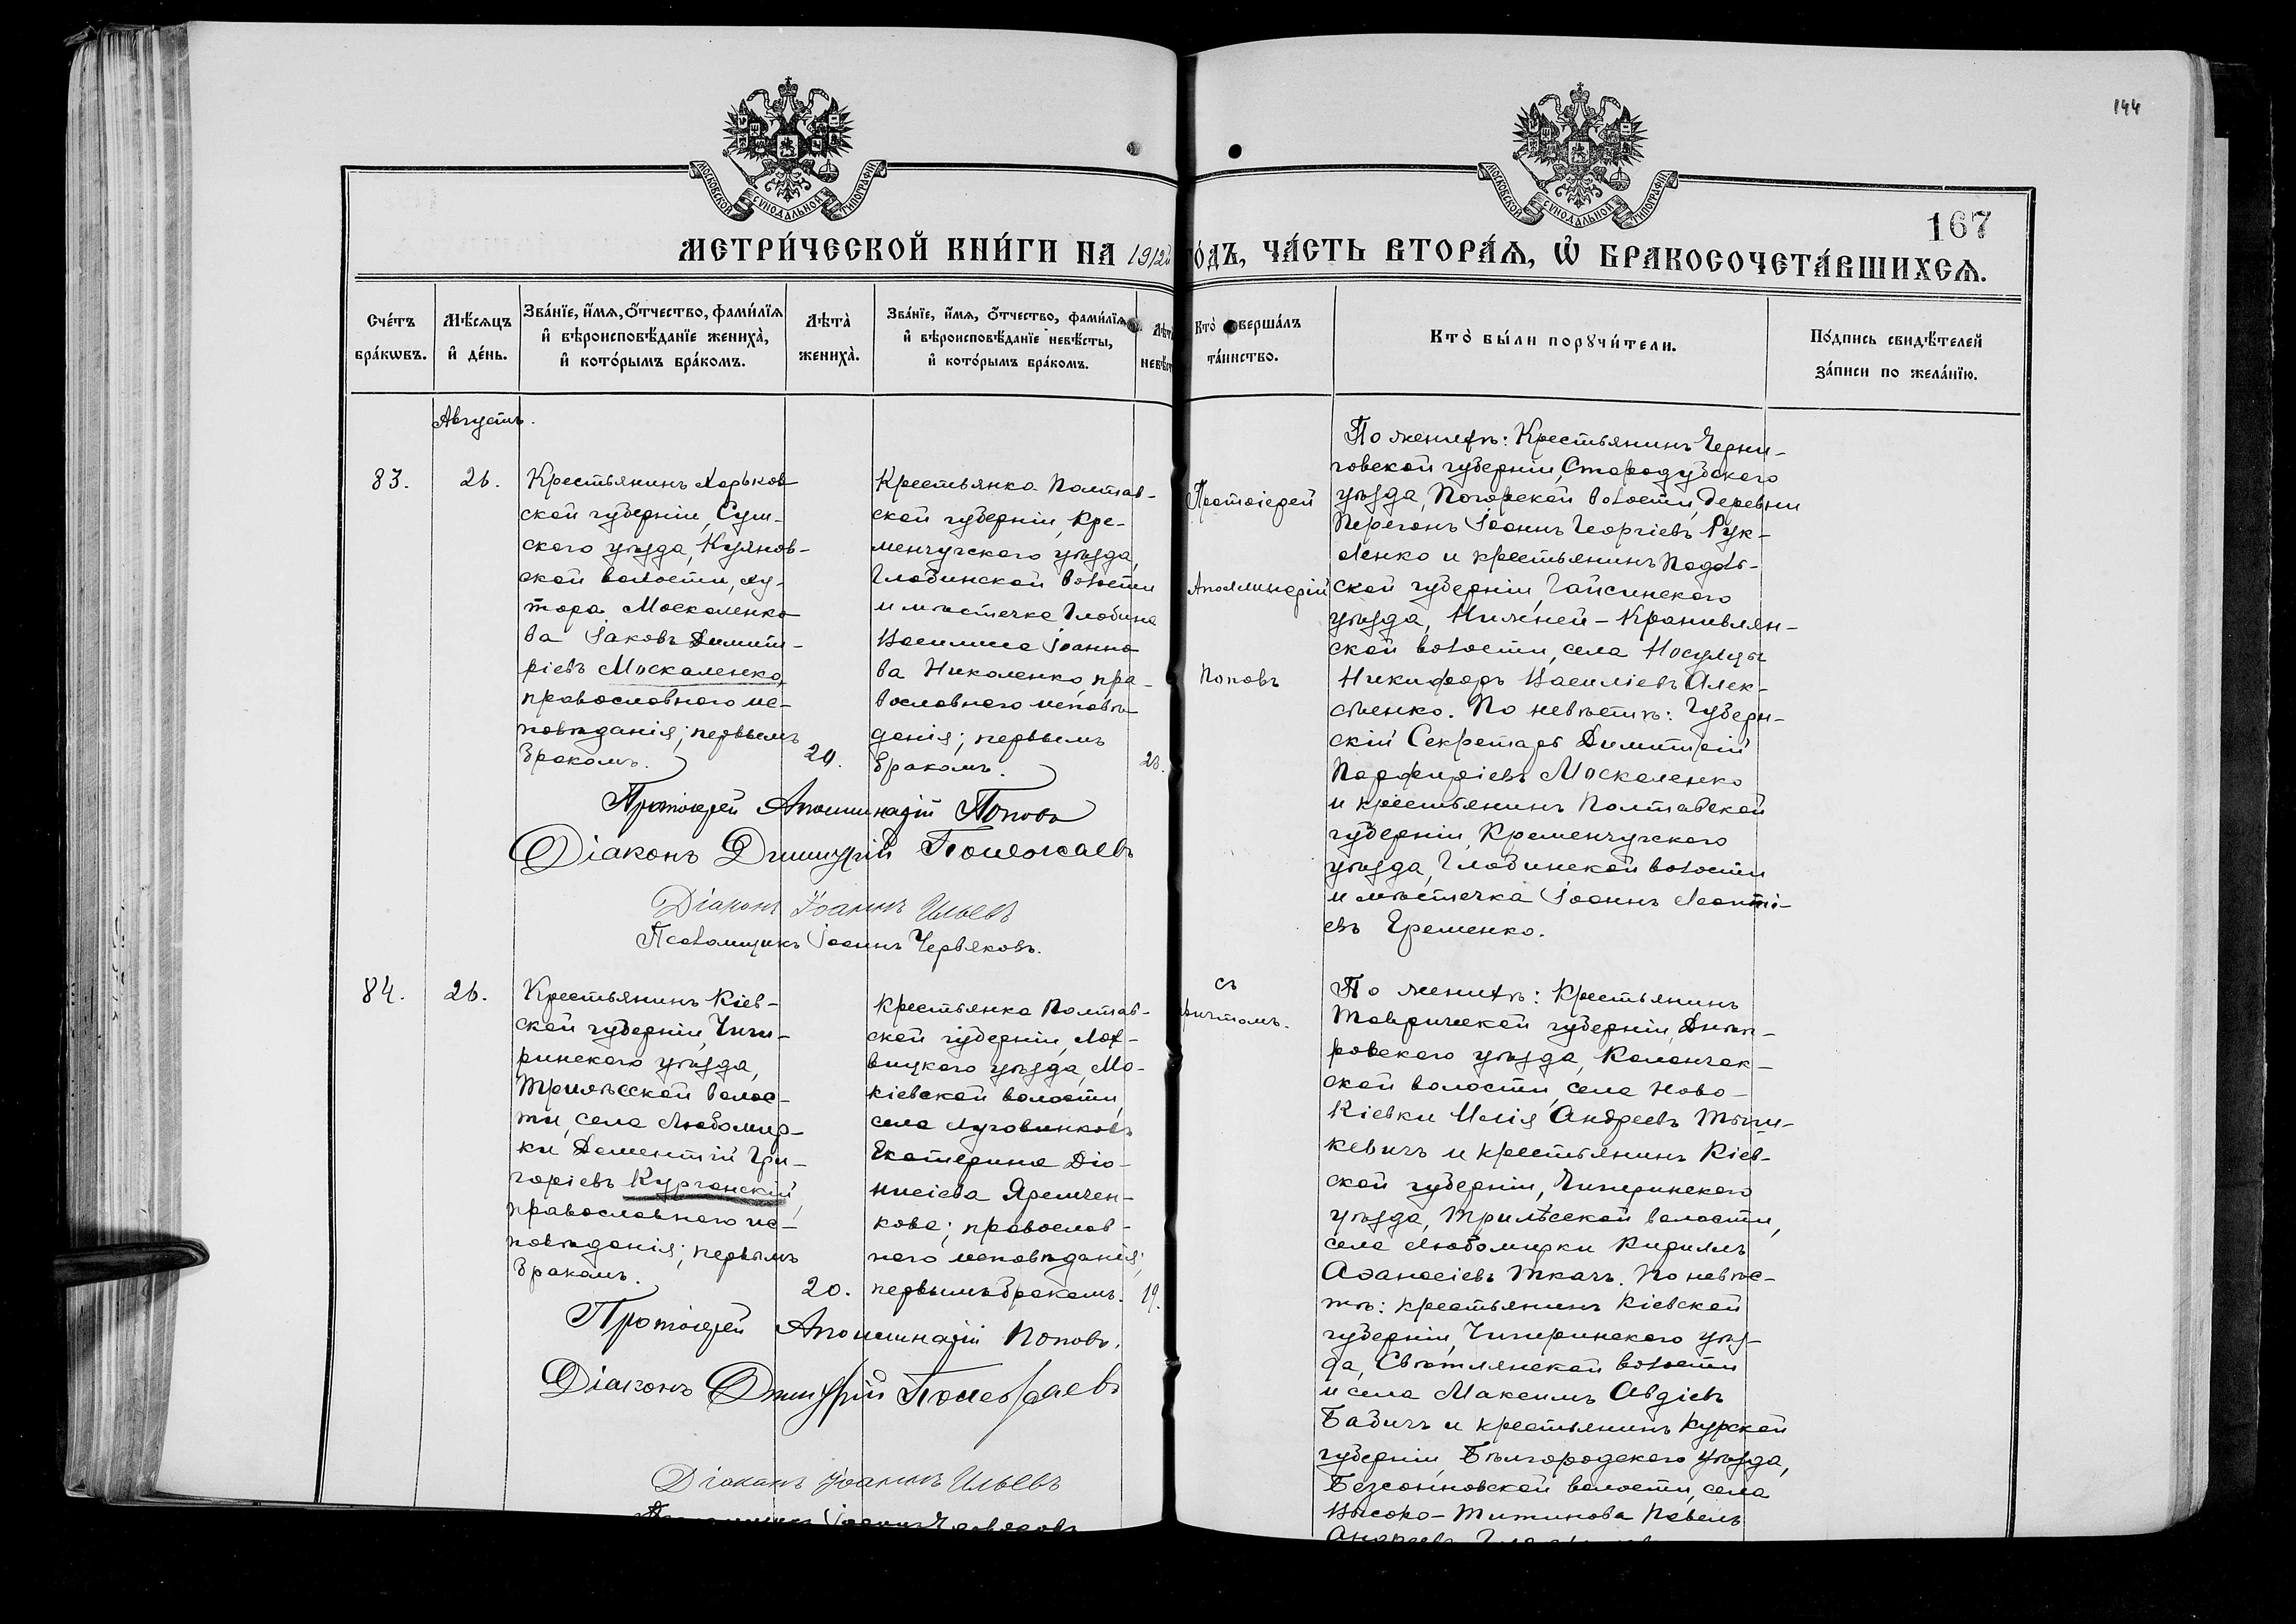 144
МОСКОВСКОЙ СУНОДАЛЬНОЙ ТИПОГРАФІИ
МОСКОВСКОЙ СУНОДАЛЬНОЙ ТИПОГРАФІИ
167
МЕТРИ́ЧЕСКОЙ КНИ́ГИ НА 1912й
ГО́ДЪ, ЧА́СТЬ ВТОРА́Ѧ, Ѽ БРАКОСОЧЕТА́ВШИХСѦ.
Сче́тъ бра́кѡвъ.
Мѣ́сѧцъ и҆ де́нь.
Зва́нїе, и҆́мѧ, ѻ҆́тчество, фами́лїѧ
и҆ вѣроисповѣ́данїе жениха̀,
и҆ кото́рымъ бра́комъ.
Лѣта̀ жениха̀.
Зва́нїе, и҆́мѧ, ѻ҆́тчество, фами́лїѧ
и҆ вѣроисповѣ́данїе невѣ́сты,
и҆ кото́рымъ бра́комъ.
Лѣта̀ невѣ́сты
Кто̀ соверша́лъ та́инство.
Кто̀ бы́ли порꙋчи́тели.
По́дпись свидѣ́телей
за́писи по жела́нїю.
Августъ.
83.
26.
Крестьянинъ Харьков-
ской губерніи, Сум-
ского уѣзда, Куянов-
ской волости, ху-
тора Москаленко-
ва Іаковъ Димит-
ріевъ Москаленко,
православнаго ис-
повѣданія; первымъ
бракомъ.
29.
Крестьянка Полтав-
ской губерніи, Кре-
менчугскаго уѣзда,
Глобинской волости
и мѣстечка Глобина
Василиса Іоанно-
ва Николенко, пра-
вославнаго исповѣ-
данія; первымъ
бракомъ.
23.
Протоіерей
Аполлинарій
Поповъ
По женихѣ: Крестьянинъ Черни-
говской губерніи, Стародубскаго
уѣзда, Погарской волости, деревни
Перегонъ Іоаннъ Георгіевъ Рук-
ленко и крестьянинъ Подоль-
ской губерніи, Гайсинскаго
уѣзда, Нижней-Кропивлян-
ской волости, села Носуляцы
Никифоръ Василіевъ Алек-
сѣенко. По невѣстѣ: Губерн-
скій Секретарь Димитрій
Порфиріевъ Москаленко
и крестьянинъ Полтавской
губерніи, Кременчугскаго
уѣзда, Глобинской волости
и мѣстечка Іоаннъ Леонті-
евъ Еременко.
Протоіерей Аполлинарій Поповъ
Діаконъ Димитрій
Діаконъ Іоаннъ Ильевъ
Псаломщикъ Іоаннъ Червяковъ.
84.
26.
Крестьянинъ Кіев-
ской губерніи, Чиги-
ринскаго уѣзда,
Трилѣсской волос-
ти, села Любомир-
ки Дементій Гри-
горіевъ Курганскій,
православнаго ис-
повѣданія; первымъ
бракомъ.
20.
Крестьянка Полтав-
ской губерніи, Лох-
вицкаго уѣзда, Мо-
кіевской волости,
села Луговиковъ
Екатерина Діо-
нисіева Яремчен-
кова; православ-
наго исповѣданія;
первымъ бракомъ.
19.
съ
причтомъ.
По женихѣ: Крестьянинъ
Таврической губерніи, Днѣп-
ровскаго уѣзда, Каланчак-
ской волости, села Ново-
Кіевки Илія Андреевъ Тыш-
кевичъ и крестьянинъ Кіев-
ской губерніи, Чигиринскаго
уѣзда, Трилѣсской волости,
села Любомирки Кириллъ
Аѳанасіевъ Ткачъ. По невѣс-
тѣ: крестьянинъ Кіевской
губерніи, Чигиринскаго уѣз-
да, Свѣтлянской волости
и села Максимъ Авдіевъ
Бабичъ и крестьянинъ Курской
губерніи, Бѣлгородскаго уѣзда,
Безсоновской волости, села
Высоко-Титикова Павелъ
Андреевъ
Протоіерей Аполлинарій Поповъ.
Діаконъ Димитрій
Діаконъ Іоаннъ Ильевъ
Псаломщикъ Іоаннъ Червяковъ